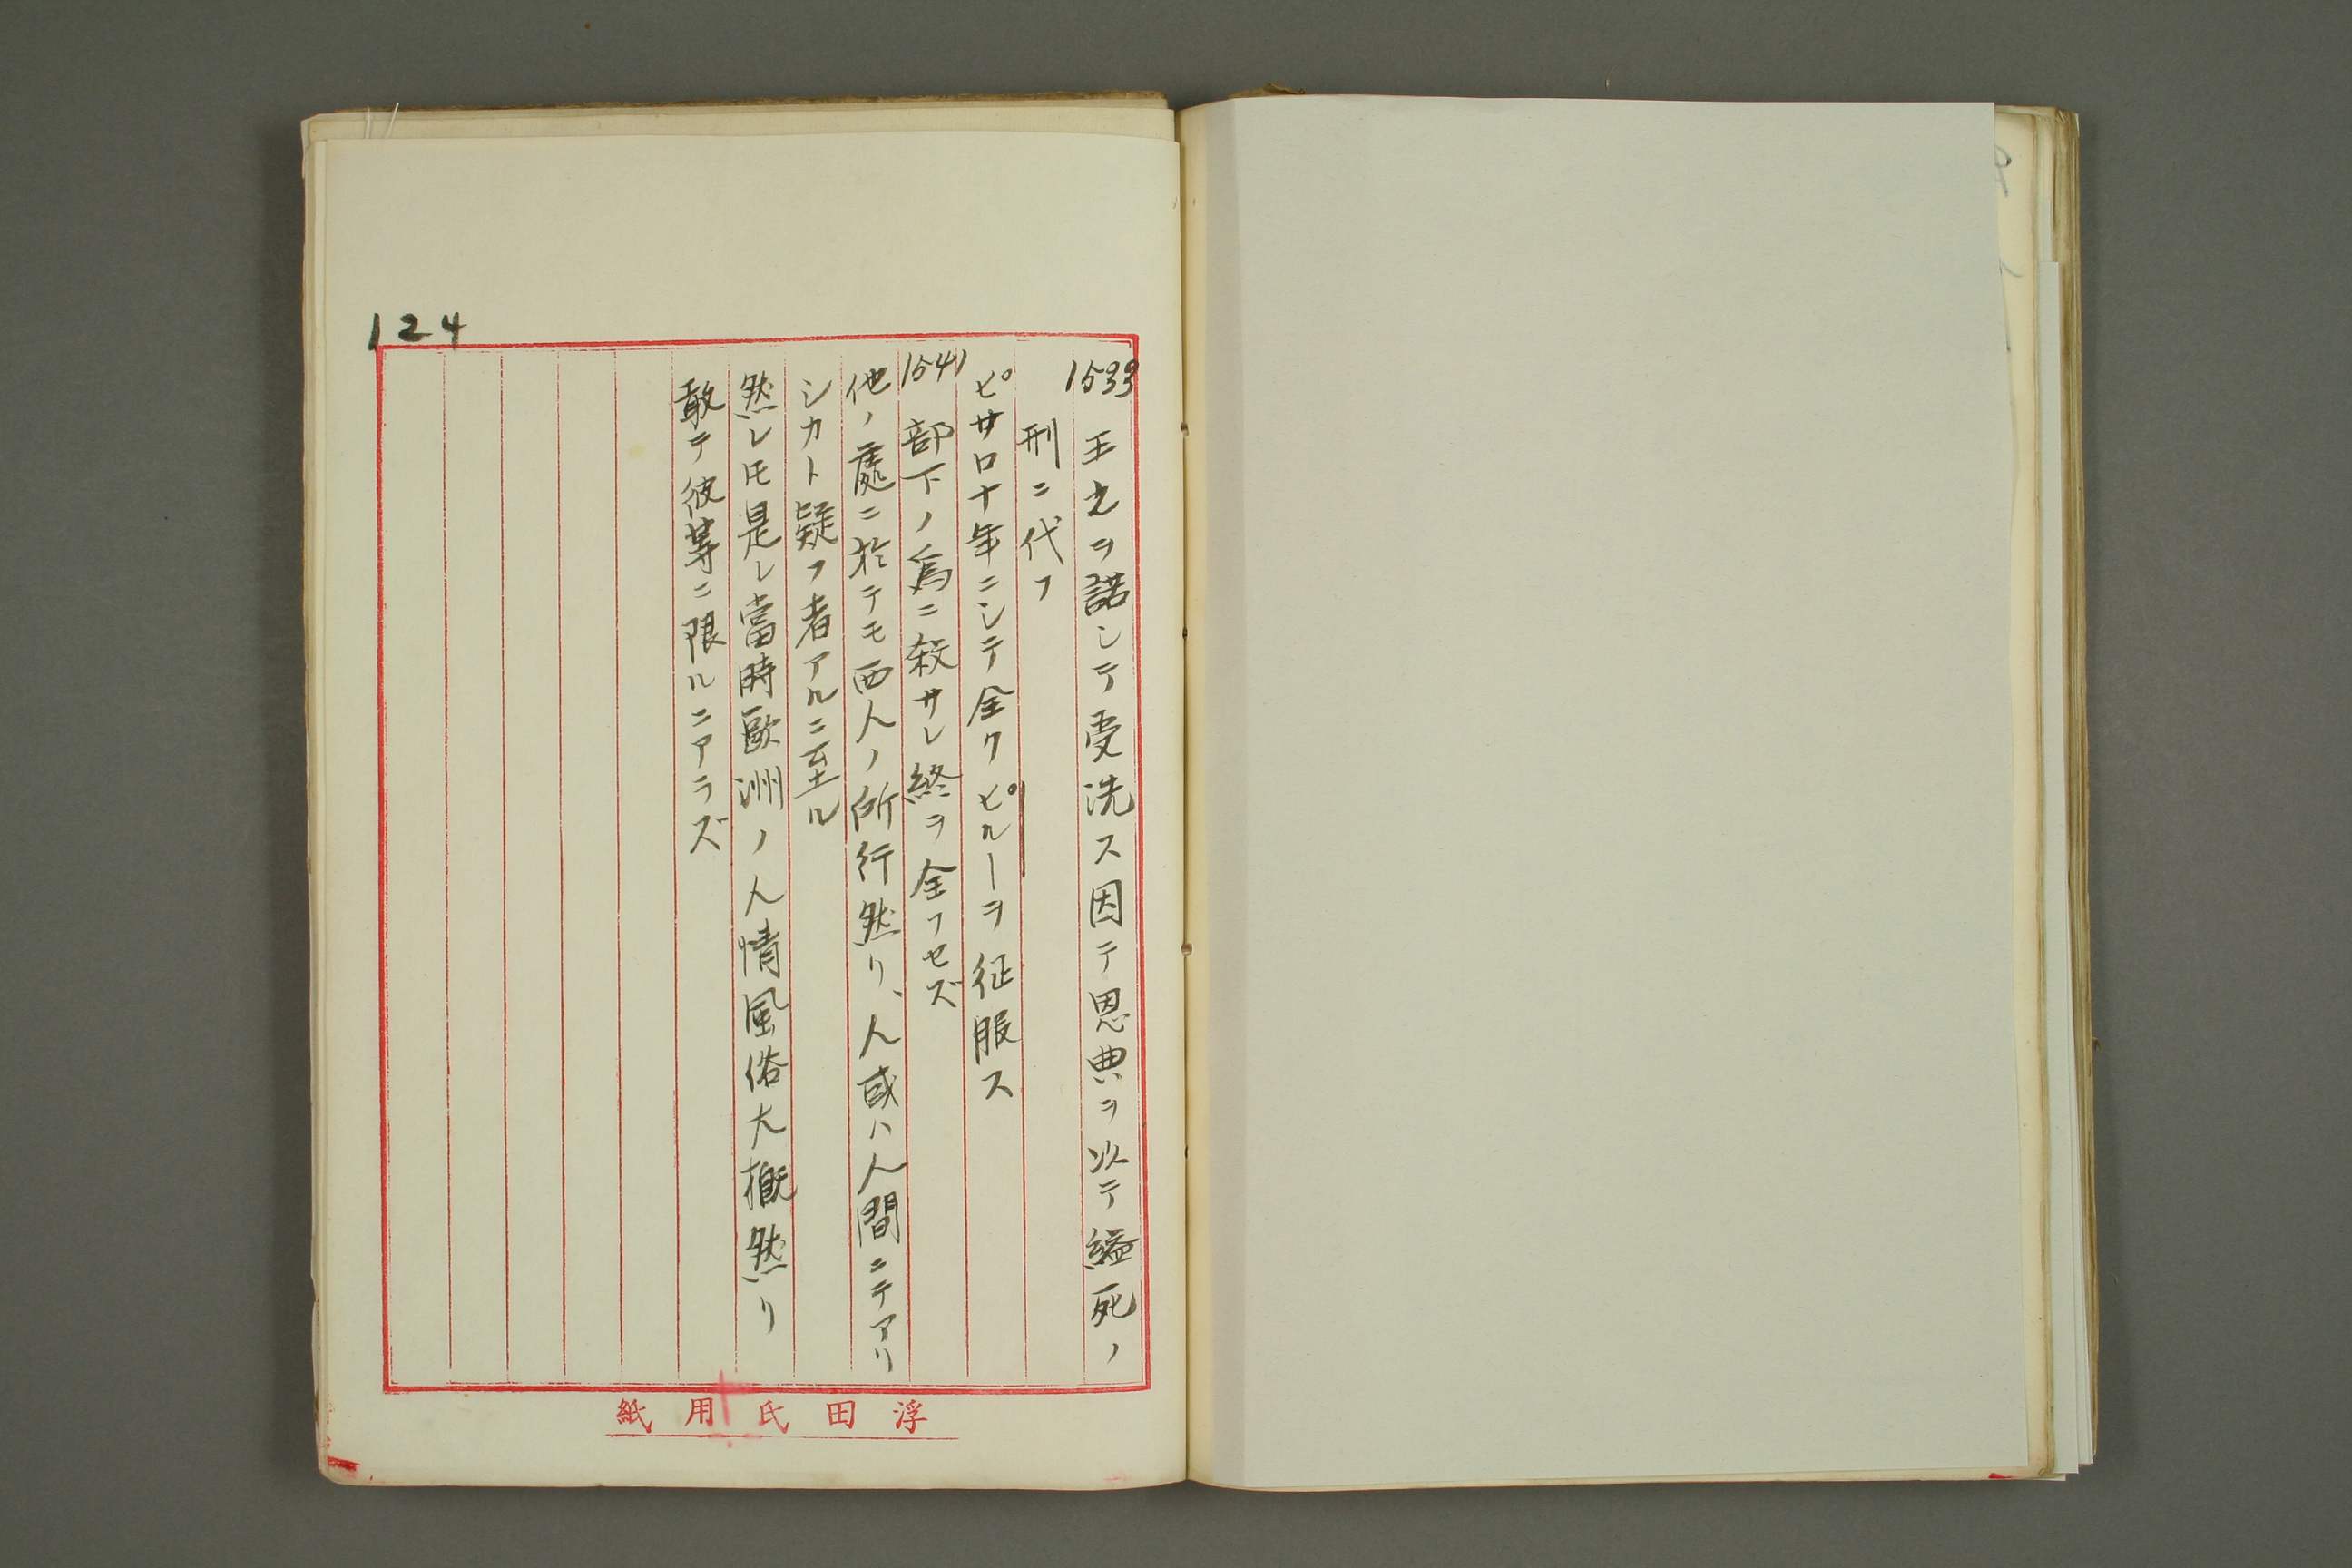 124
1533 王之ヲ諾シテ受洗ス因テ恩典ヲ以テ縊死ノ
刑ニ代フ
ピサロ十年ニシテ全クピルーヲ征服ス
1541 部下ノ為ニ殺サレ終ヲ全フセズ
他ノ處ニ於テモ西人ノ所行然リ、人或ハ人間ニテアリ
シカト疑フ者アルニ至ル
然レ𪜈是レ當時歐洲ノ人情風俗大概然リ
敢テ彼等ニ限ルニアラズ
浮田氏用紙